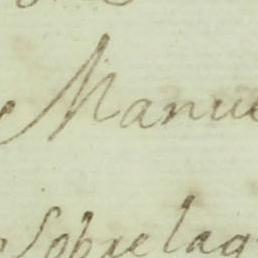 Manue
Sobre lag